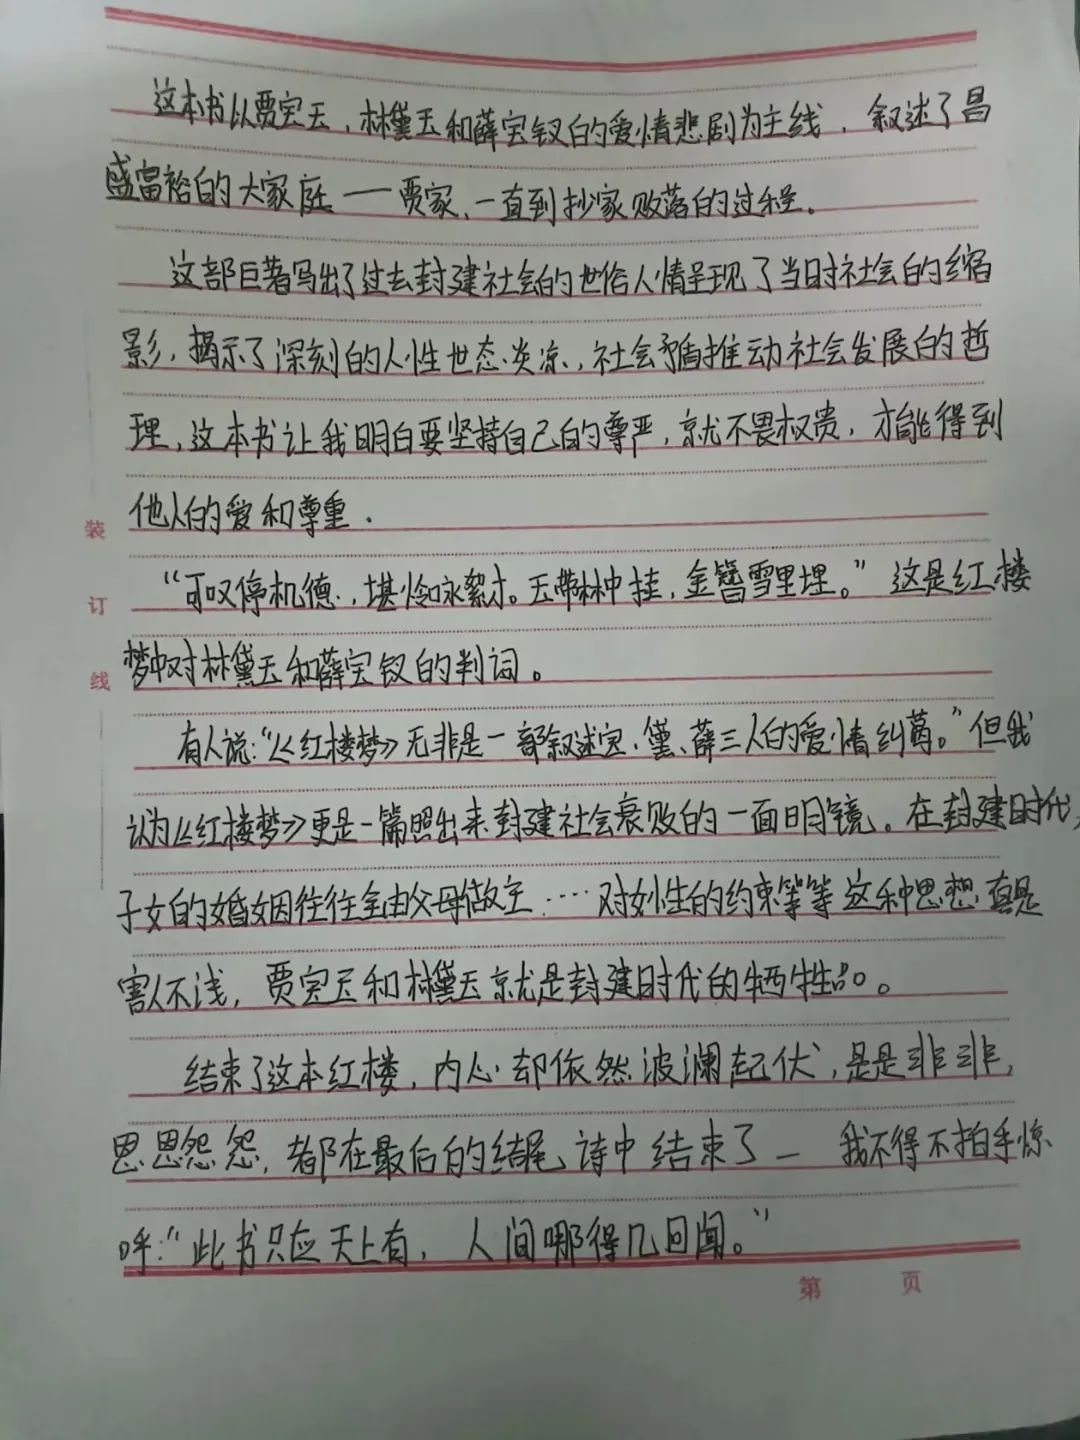 这本书以贾宝玉，林黛玉和薛宝钗的爱情悲剧为主线，叙述了昌
盛富裕的大家庭——贾家，一直到抄家败落的过程。
这部巨著写出了过去封建社会的世俗人情呈现了当时社会的缩
影，揭示了深刻的人性世态炎凉，社会矛盾推动社会发展的哲
理，这本书让我明白要坚持自己的尊严，就不畏权贵，才能得到
他人的爱和尊重.
“可叹停机德，堪怜咏絮才。玉带林中挂，金簪雪里埋。”这是红楼
梦中对林黛玉和薛宝钗的判词。
有人说：“《红楼梦》无非是一部叙述宝、黛、薛三人的爱情纠葛。”但我
认为《红楼梦》更是一篇照出来封建社会衰败的一面明镜。在封建时代，
子女的婚姻往往全由父母做主……对女性的约束等等这种思想真是
害人不浅，贾宝玉和林黛玉就是封建时代的牺牲品。
结束了这本红楼，内心却依然波澜起伏，是是非非，
恩恩怨怨，都在最后的结尾诗中结束了—我不得不拍手惊
呼：“此书只应天上有，人间哪得几回闻。”
装
订
线
第 页